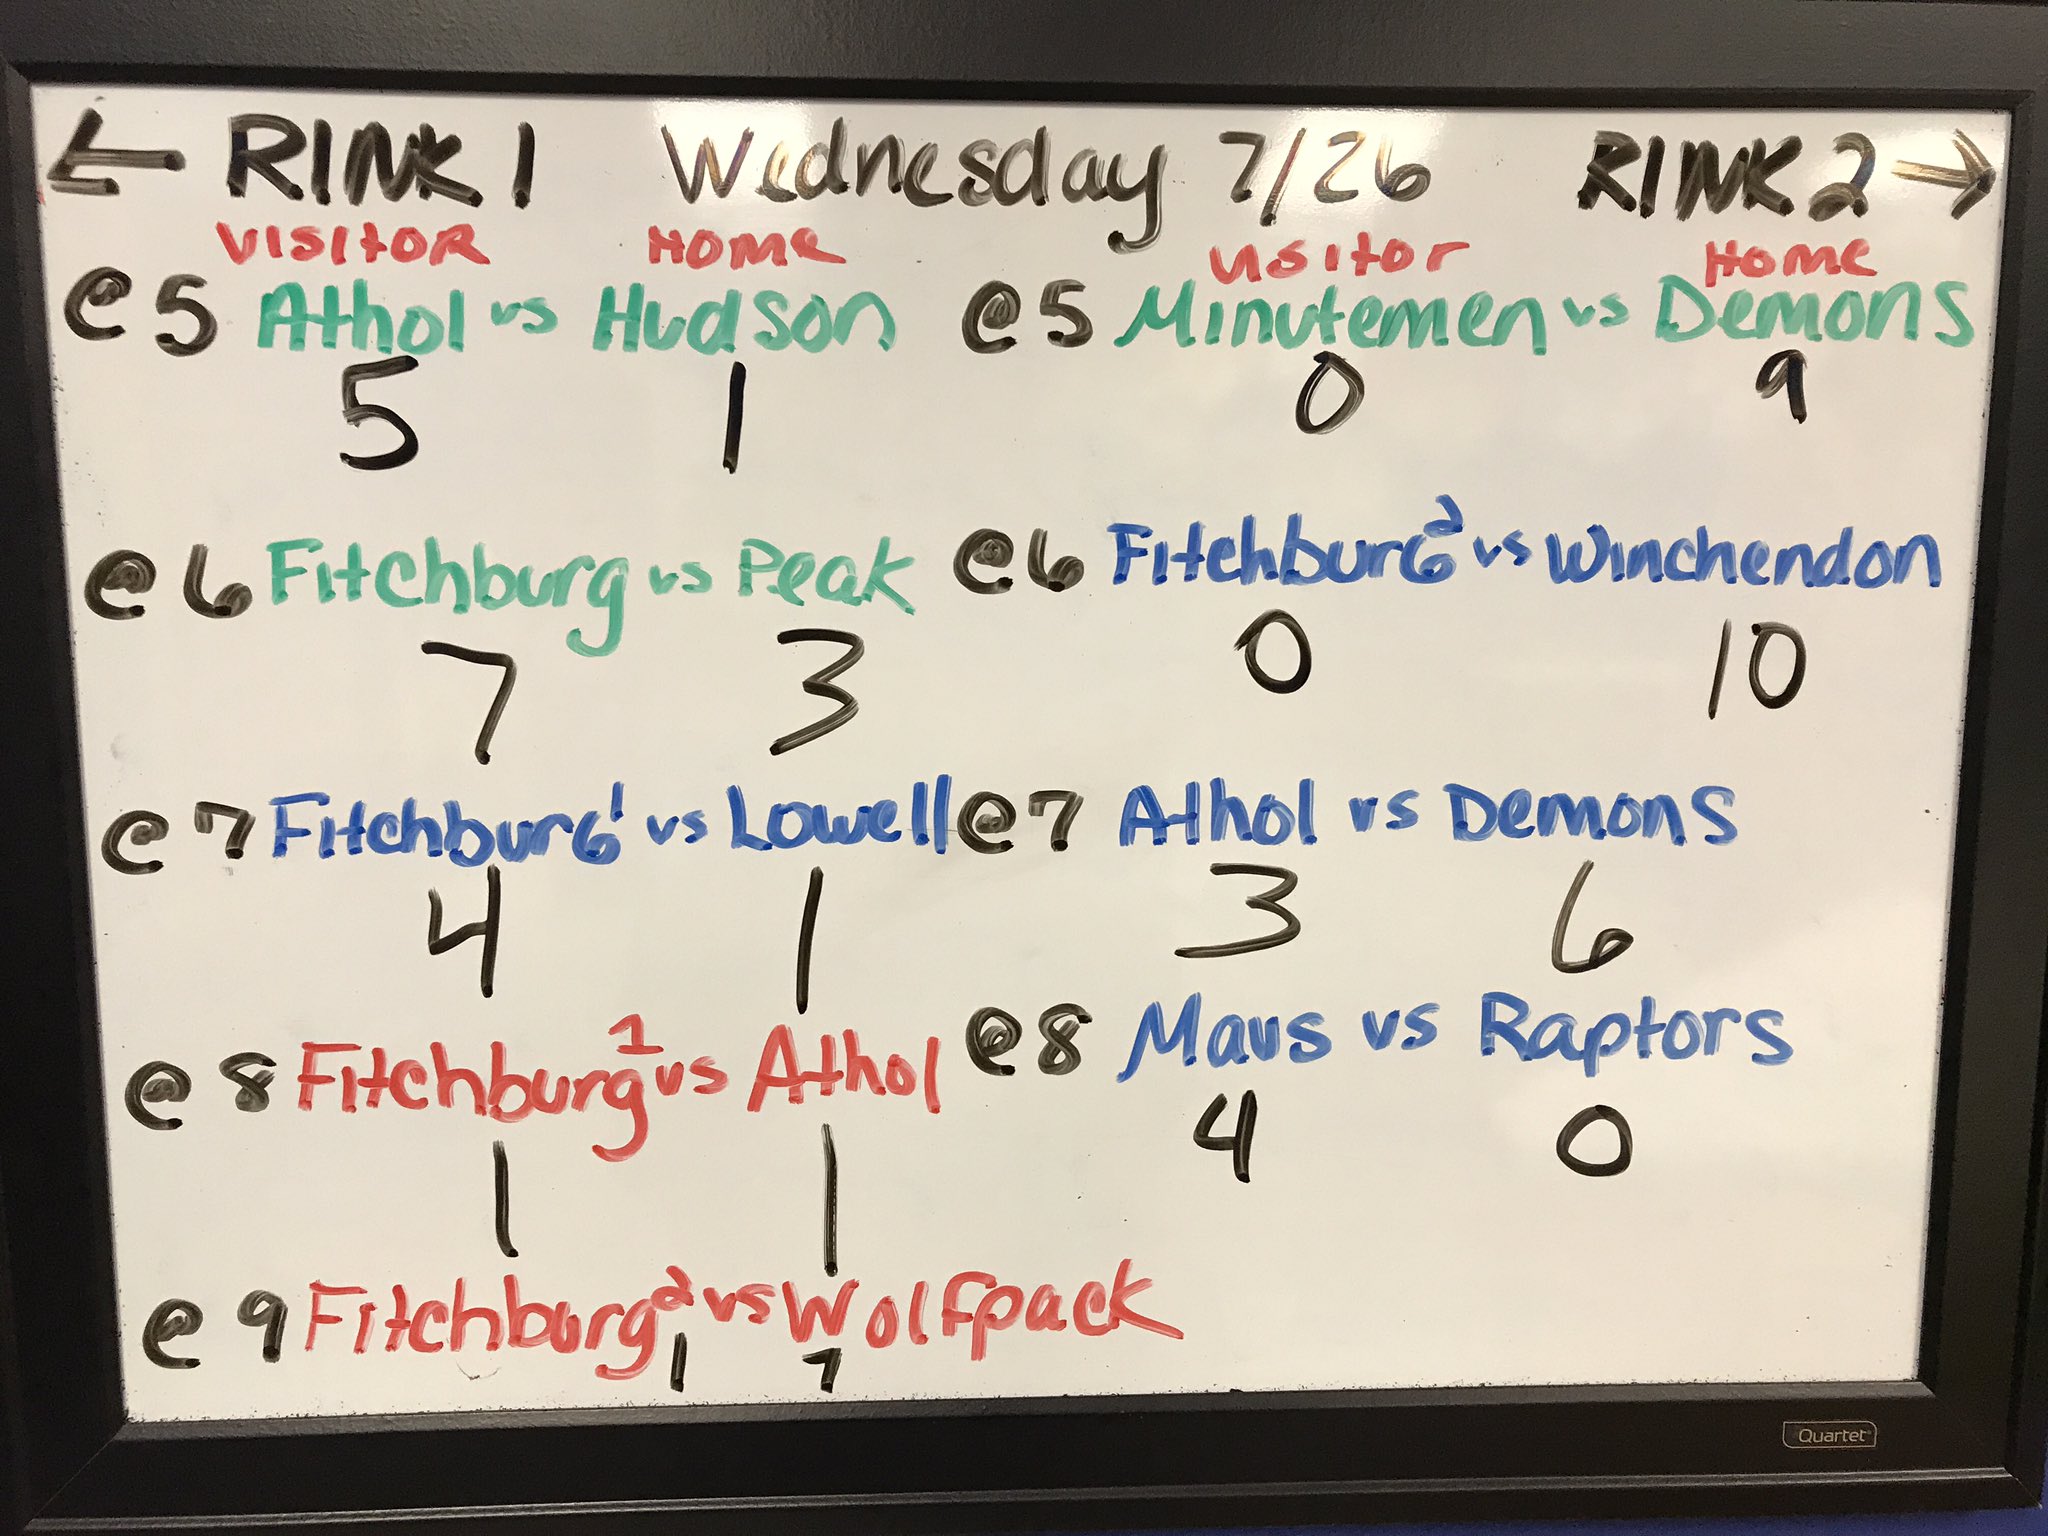 ← RINK 1 Wednesday 7/26 RINK 2 →
VISITOR HOME VISITOR HOME
@ 5 Athol vs Hudson @ 5 Minutemen vs Demons
5 1 0 9
@ 6 Fitchburg vs Peak @ 6 Fitchburg² vs Winchendon
7 3 0 10
@ 7 Fitchburg¹ vs Lowell @ 7 Athol vs Demons
4 1 3 6
@ 8 Fitchburg¹ vs Athol @ 8 Mavs vs Raptors
1 1 4 0
@ 9 Fitchburg² vs Wolfpack
1 7
Quartet